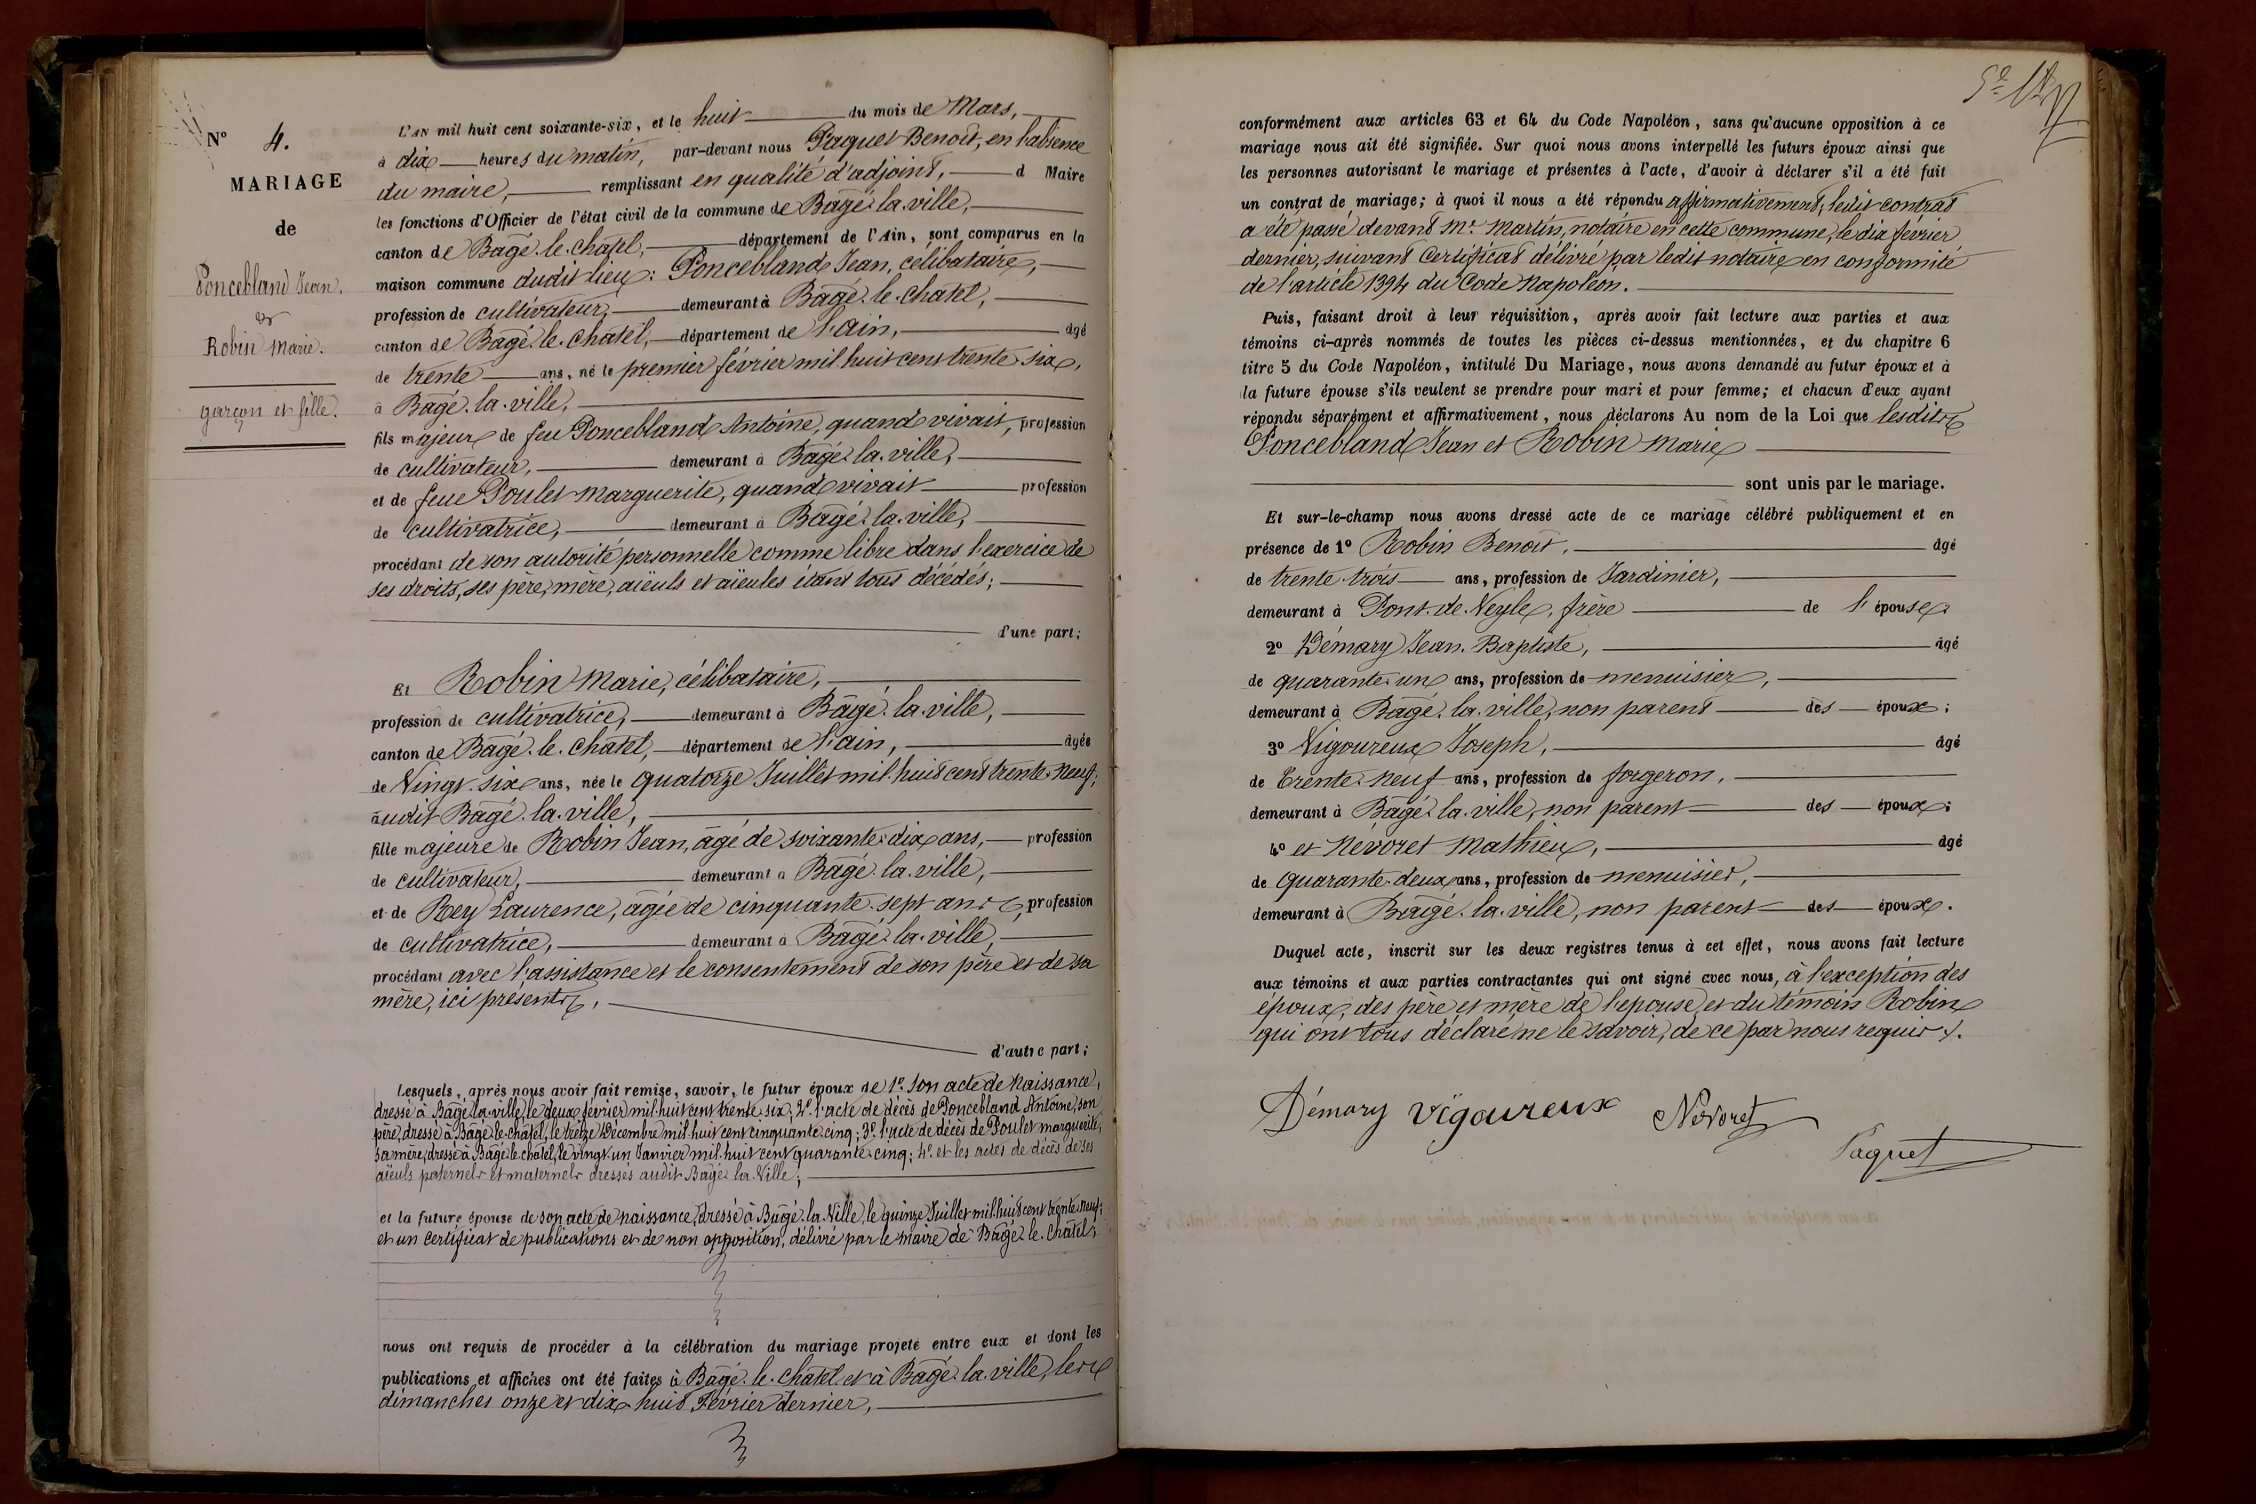 N° 4.
MARIAGE
de
Poncebland Jean.
et
Robin Marie.
garçon et fille.
L'AN mil huit cent soixante-six, et le huit du mois de Mars,
à dix heures du matin, par-devant nous Paquet Benoît, en l'absence
du maire, remplissant en qualité d'adjoint, d Maire
les fonctions d'Officier de l'état civil de la commune de Bagé-la-ville,
canton de Bagé-le-châtel, département de l'Ain, sont comparus en la
maison commune dudit lieu: Poncebland Jean, célibataire,
profession de cultivateur, demeurant à Bagé-le-chatel,
canton de Bagé-le-châtel, département de l'ain, âgé
de trente ans, né le premier février mil huit cent trente-six,
à Bagé-la-ville,
fils majeur de feu Poncebland Antoine, quand vivait, profession
de cultivateur, demeurant à Bagé-la-ville,
et de feue Poulet marguerite, quand vivait profession
de cultivatrice, demeurant à Bagé-la-ville,
procédant de son autorité personnelle comme libre dans l'exercice de
ses droits, ses père, mère, aïeuls et aïeules étant tous décédés;
d'une part;
Et Robin Marie, célibataire,
profession de cultivatrice, demeurant à Bagé-la-ville,
canton de Bagé-le-châtel, département de l'ain, âgée
de Vingt-six ans, née le quatorze Juillet mil huit cent trente-neuf,
audit Bagé-la-ville,
fille majeure de Robin Jean, âgé de soixante-dix ans, profession
de cultivateur, demeurant à Bagé-la-ville,
et de Rey Laurence, âgée de cinquante-sept ans, profession
de cultivatrice, demeurant à Bagé-la-ville,
procédant avec l'assistance et le consentement de son père et de sa
mère, ici présents,
d'autre part;
Lesquels, après nous avoir fait remise, savoir, le futur époux de 1° son acte de naissance,
dressé à Bagé-la-ville, le deux février mil huit cent trente-six; 2° l'acte de décès de Poncebland Antoine, son
père, dressé à Bagé-le-châtel, le treize Décembre mil huit cent cinquante-cinq; 3° l'acte de décès de Poulet marguerite,
sa mère, dressé à Bagé-le-châtel, le vingt-un Janvier mil huit cent quarante-cinq; 4° et les actes de décès de ses
aïeuls paternels et maternels dressés audit Bagé-la-Ville;
et la future épouse de son acte de naissance, dressé à Bagé-la-Ville, le quinze Juillet mil huit cent trente-neuf;
et un certificat de publications et de non opposition, délivré par le maire de Bagé-le-châtel;
nous ont requis de procéder à la célébration du mariage projeté entre eux et dont les
publications et affiches ont été faites à Bagé-le-châtel et à Bagé-la-ville, les
dimanches onze et dix-huit Février dernier,
conformément aux articles 63 et 64 du Code Napoléon, sans qu'aucune opposition à ce
mariage nous ait été signifiée. Sur quoi nous avons interpellé les futurs époux ainsi que
les personnes autorisant le mariage et présentes à l'acte, d'avoir à déclarer s'il a été fait
un contrat de mariage; à quoi il nous a été répondu affirmativement, ledit contrat
a été passé devant Me Martin, notaire en cette commune, le dix février
dernier, suivant Certificat délivré par ledit notaire en conformité
de l'article 1394 du Code Napoléon.
Puis, faisant droit à leur réquisition, après avoir fait lecture aux parties et aux
témoins ci-après nommés de toutes les pièces ci-dessus mentionnées, et du chapitre 6
titre 5 du Code Napoléon, intitulé Du Mariage, nous avons demandé au futur époux et à
la future épouse s'ils veulent se prendre pour mari et pour femme; et chacun d'eux ayant
répondu séparément et affirmativement, nous déclarons Au nom de la Loi que lesdits
Poncebland Jean et Robin Marie
sont unis par le mariage.
Et sur-le-champ nous avons dressé acte de ce mariage célébré publiquement et en
présence de 1° Robin Benoît, âgé
de trente-trois ans, profession de Jardinier,
demeurant à Pont-de-Veyle, frère de l'épouse
2° Démary Jean-Baptiste, âgé
de quarante-un ans, profession de menuisier,
demeurant à Bagé-la-ville, non parent des époux;
3° Vigoureux Joseph, âgé
de trente-neuf ans, profession de forgeron,
demeurant à Bagé-la-ville, non parent des époux;
4° et Névoret Mathieu, âgé
de quarante-deux ans, profession de menuisier,
demeurant à Bagé-la-ville, non parent des époux.
Duquel acte, inscrit sur les deux registres tenus à cet effet, nous avons fait lecture
aux témoins et aux parties contractantes qui ont signé avec nous, à l'exception des
époux, des père et mère de l'epouse, et du témoin Robin
qui ont tous déclaré ne le savoir, de ce par nous requis.
Démary Vigoureux Nevoret
Paquet